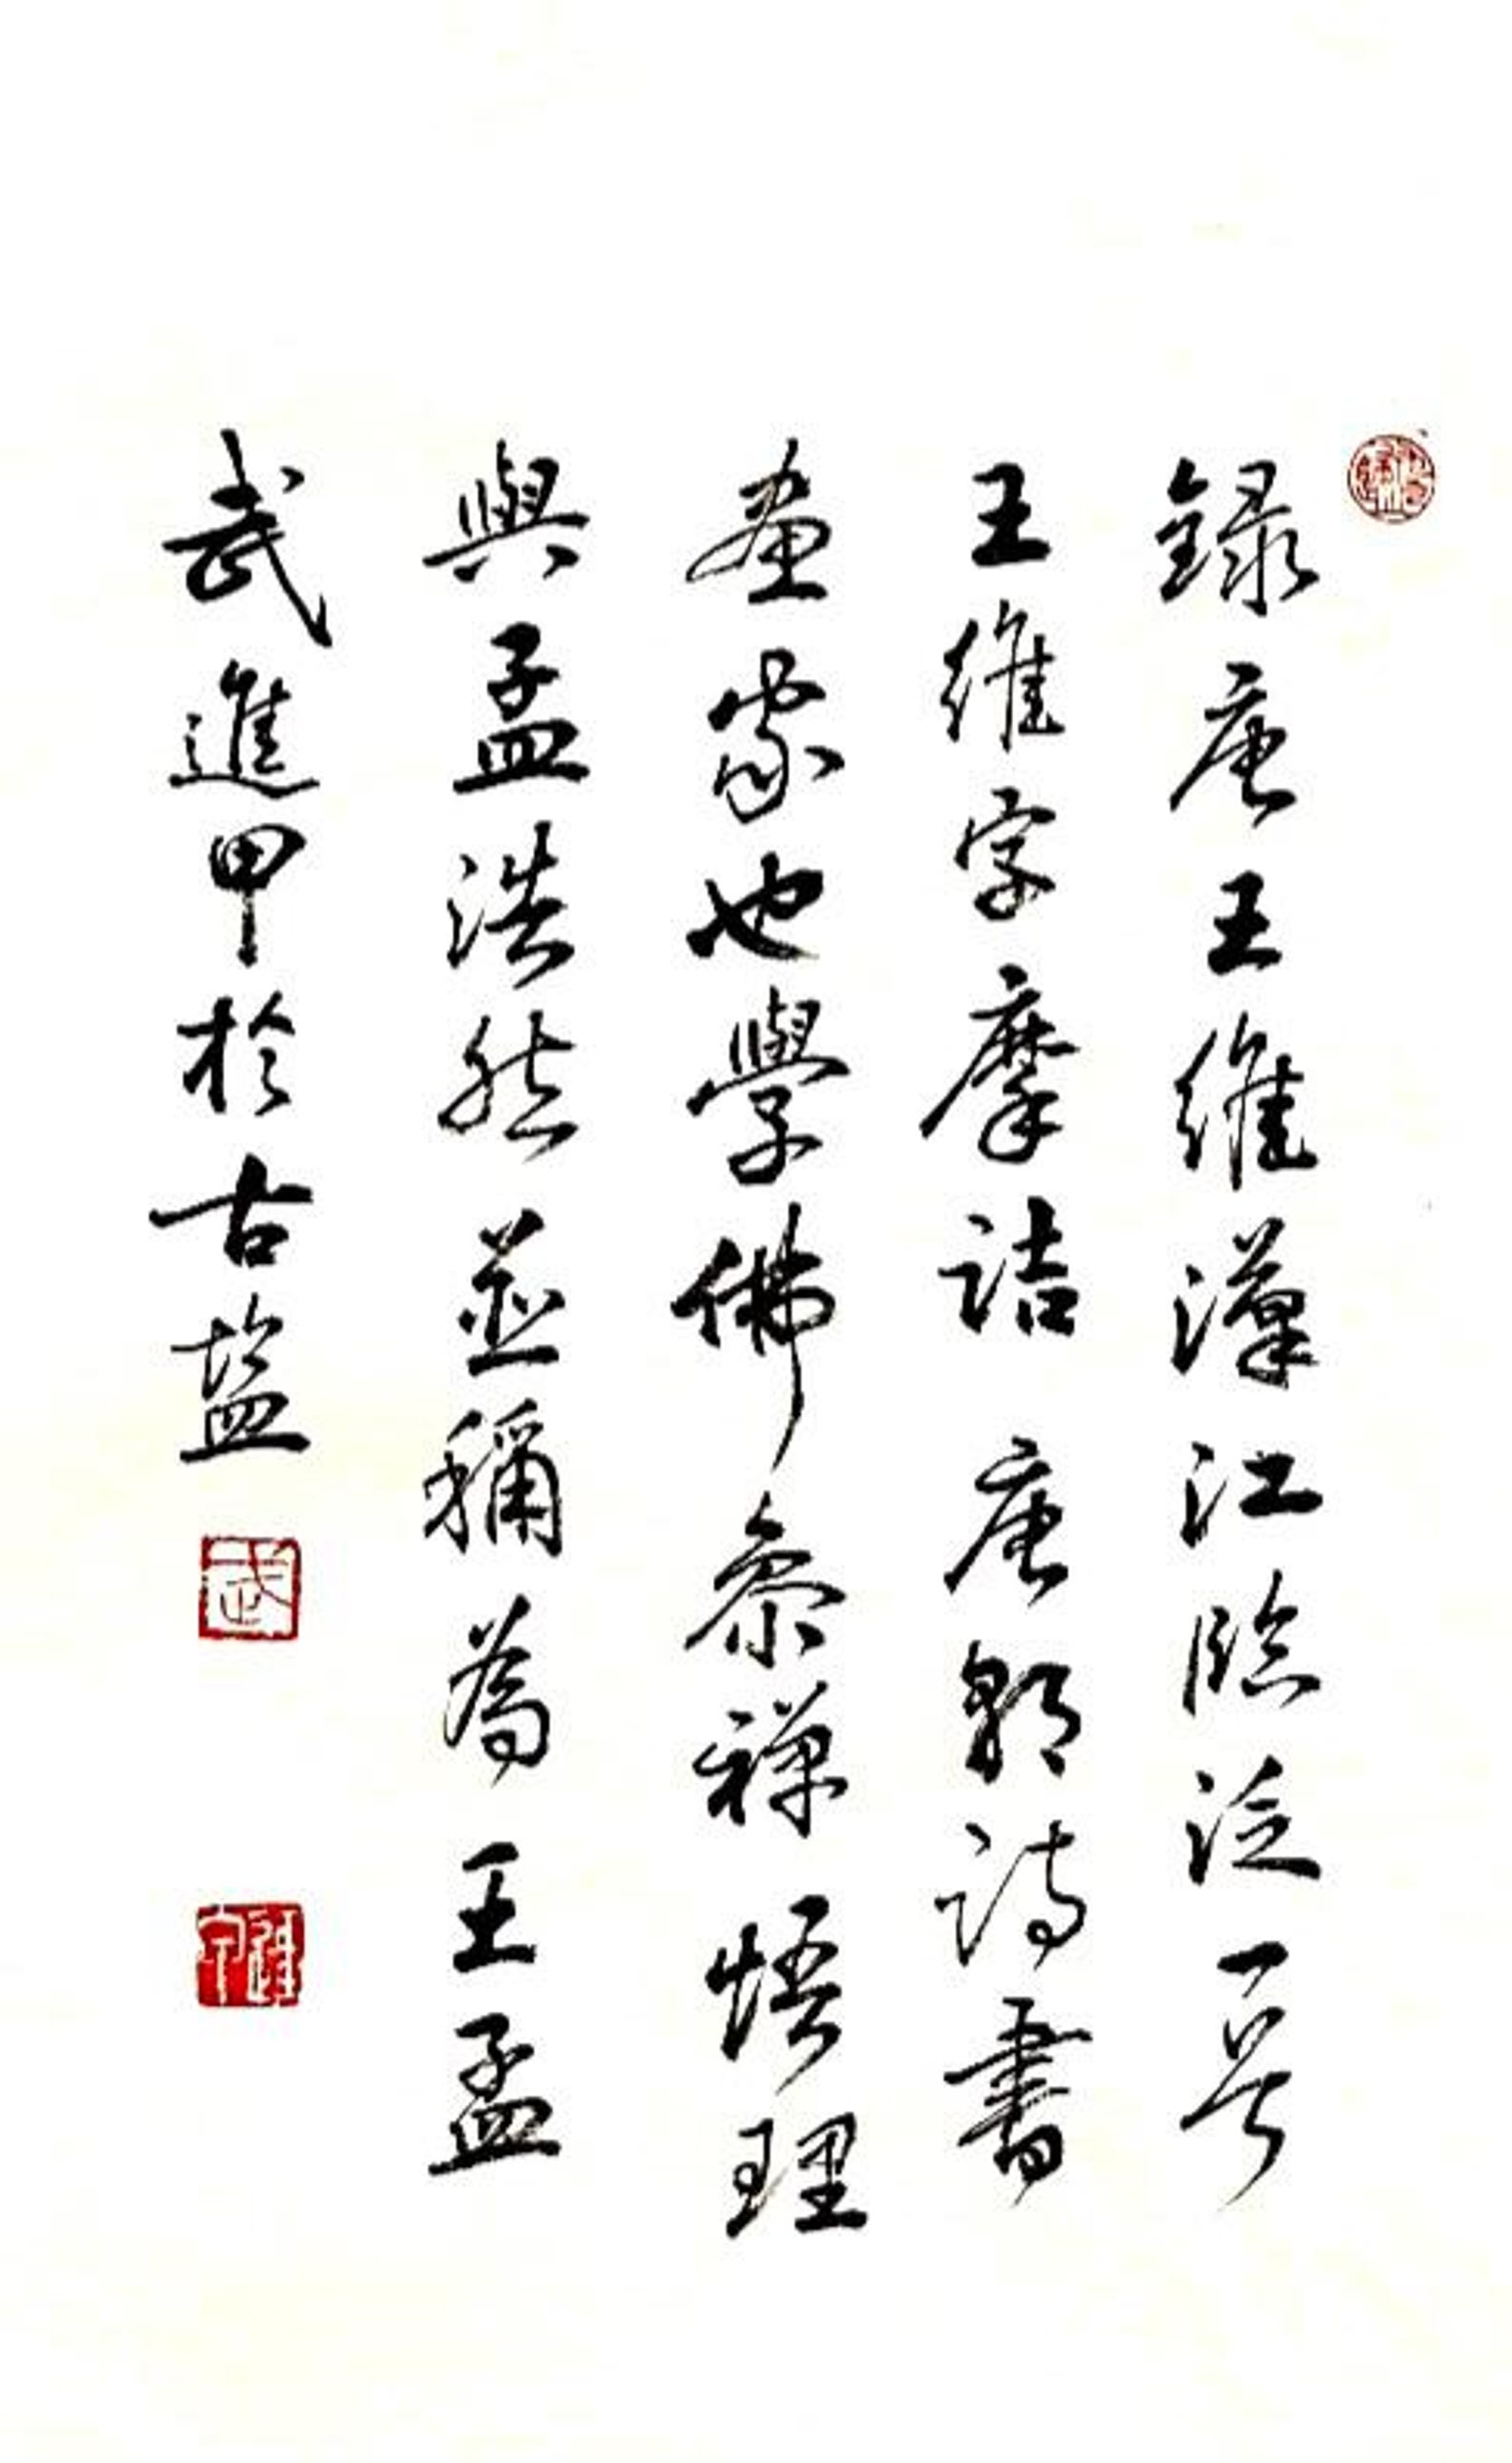 錄唐王維漢江臨泛一首
王維字摩詰唐朝詩書
畫家也學佛參禪悟理
與孟浩然並稱為王孟
武進甲於古盐
武